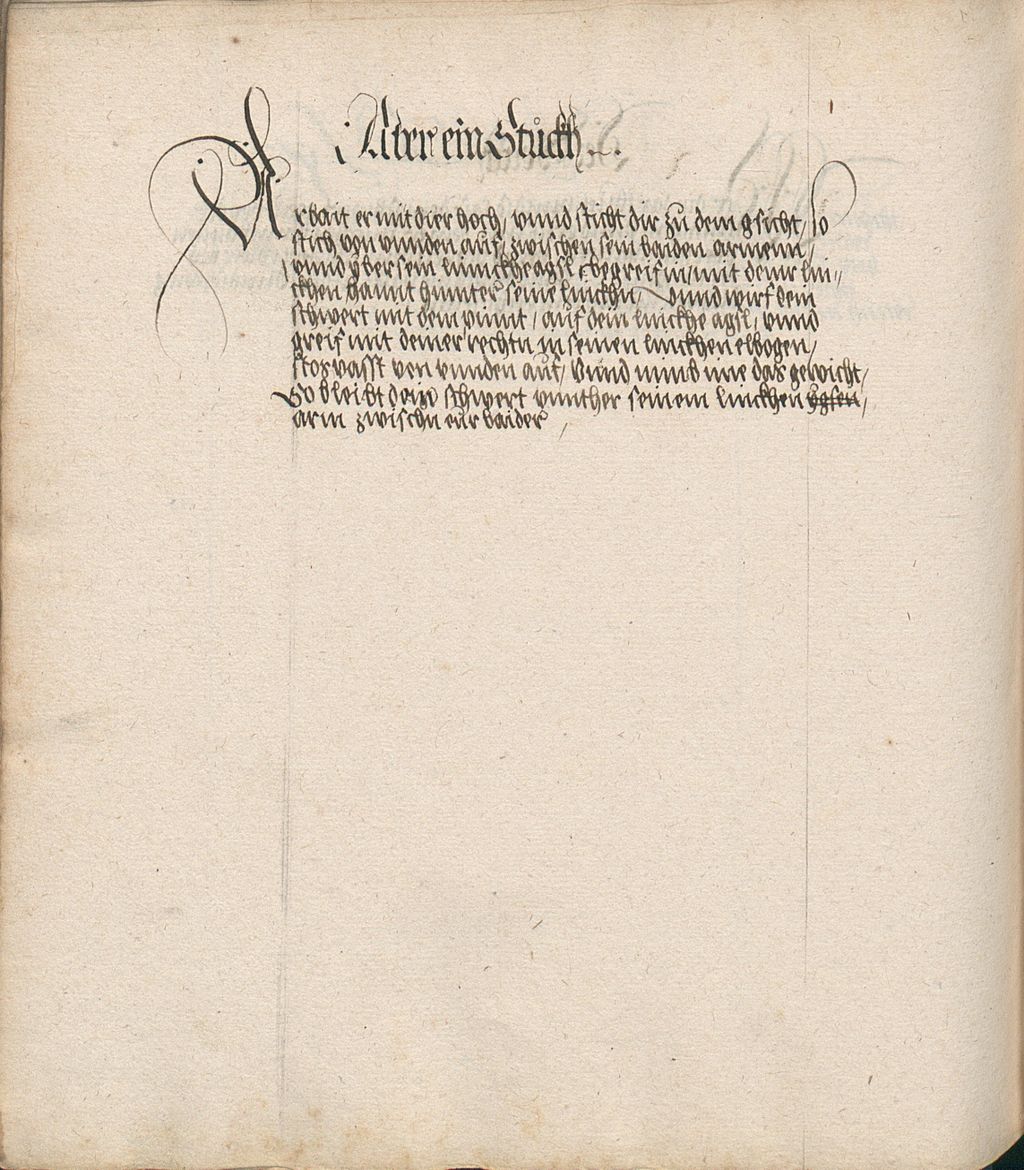 Aber ein Stuckh
Arbait er mit dier hoch / vnnd sticht dir zu dem gsicht / so
stich von vnnden auf / zwischen sein baiden armenn /
vnnd yber sein linnckhe agsl / begreif in / mit deinr lin=
ckhen hannt hunter seine linckhn / vnnd wirf dein
schwert mit dem pinnt / auf dein linckhe agsl / vnnd
greif mit deiner rechtn in seinen linckhen elbogen /
stos vasst von vnnden auf / vnnd nimb ime das gewicht /
So bleibt dein schwert vnnther seinem linckhen
arm zwischn eur baider /